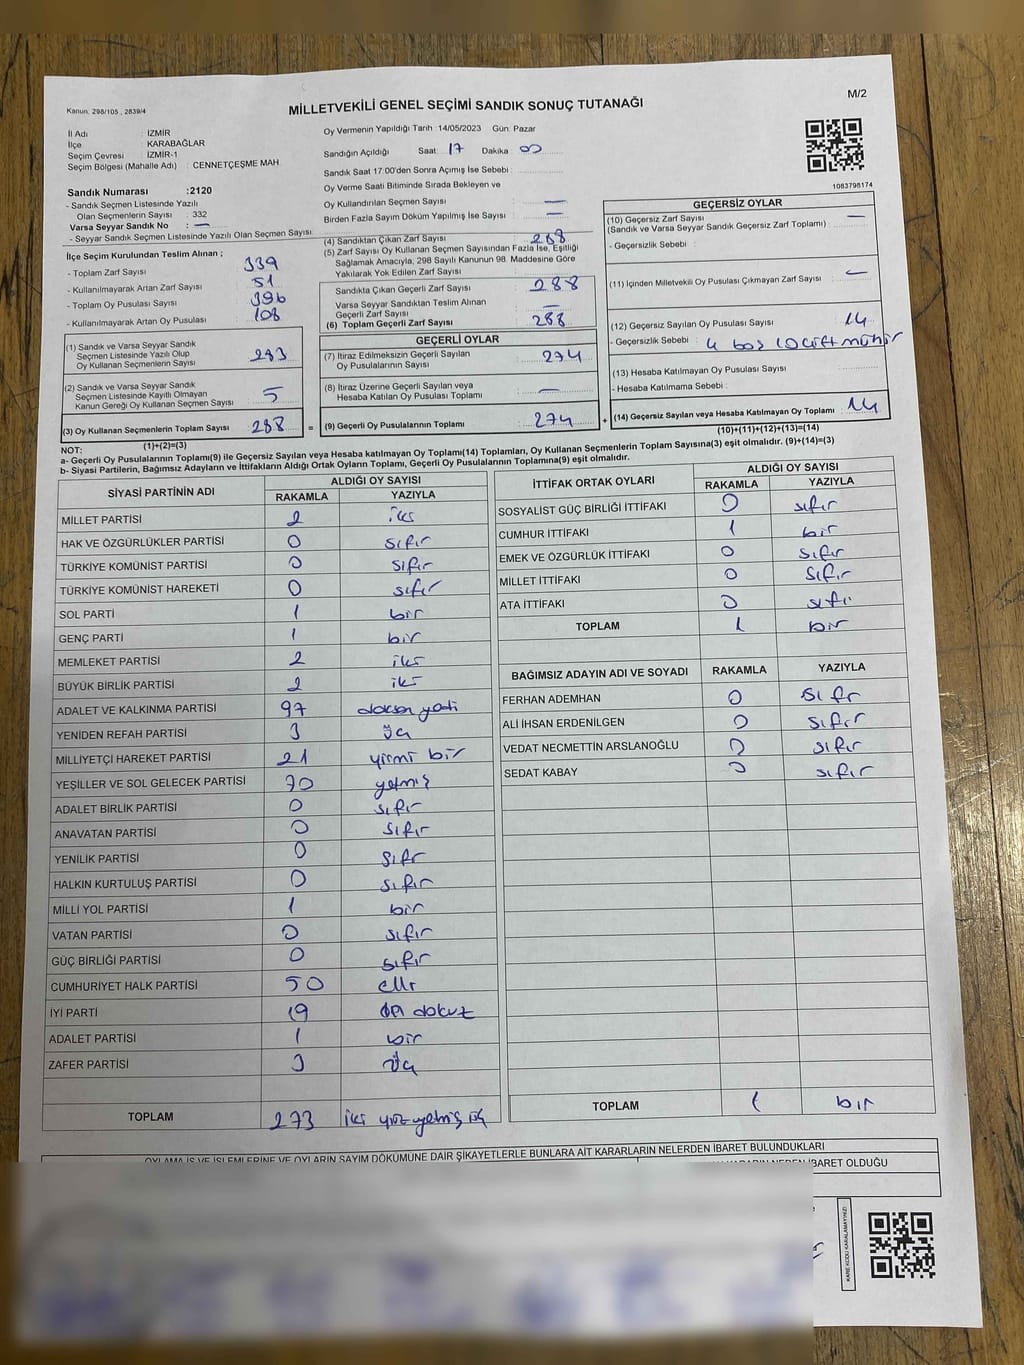 M/2
Kanun. 298/105 , 2839/4
MİLLETVEKİLİ GENEL SEÇİMİ SANDIK SONUÇ TUTANAĞI
İl Adı : İZMİR
İlçe : KARABAĞLAR
Seçim Çevresi : İZMİR-1
Seçim Bölgesi (Mahalle Adı) : CENNETÇEŞME MAH.
Sandık Numarası :2120
- Sandık Seçmen Listesinde Yazılı
Olan Seçmenlerin Sayısı : 332
Varsa Seyyar Sandık No : —
- Seyyar Sandık Seçmen Listesinde Yazılı Olan Seçmen Sayısı
Oy Vermenin Yapıldığı Tarih :14/05/2023 Gün: Pazar
Sandığın Açıldığı Saat: 17 Dakika: 00
Sandık Saat 17:00'den Sonra Açılmış İse Sebebi :
Oy Verme Saati Bitiminde Sırada Bekleyen ve
Oy Kullandırılan Seçmen Sayısı —
Birden Fazla Sayım Döküm Yapılmış İse Sayısı —
1083798174
İlçe Seçim Kurulundan Teslim Alınan ;
- Toplam Zarf Sayısı 339
- Kullanılmayarak Artan Zarf Sayısı 51
- Toplam Oy Pusulası Sayısı 396
- Kullanılmayarak Artan Oy Pusulası 108
(1) Sandık ve Varsa Seyyar Sandık
Seçmen Listesinde Yazılı Olup
Oy Kullanan Seçmenlerin Sayısı 283
(2) Sandık ve Varsa Seyyar Sandık
Seçmen Listesinde Kayıtlı Olmayan
Kanun Gereği Oy Kullanan Seçmen Sayısı 5
(3) Oy Kullanan Seçmenlerin Toplam Sayısı 288 =
(1)+(2)=(3)
(4) Sandıktan Çıkan Zarf Sayısı 288
(5) Zarf Sayısı Oy Kullanan Seçmen Sayısından Fazla İse, Eşitliği
Sağlamak Amacıyla, 298 Sayılı Kanunun 98. Maddesine Göre
Yakılarak Yok Edilen Zarf Sayısı
Sandıkta Çıkan Geçerli Zarf Sayısı 288
Varsa Seyyar Sandıktan Teslim Alınan
Geçerli Zarf Sayısı —
(6) Toplam Geçerli Zarf Sayısı 288
GEÇERLİ OYLAR
(7) İtiraz Edilmeksizin Geçerli Sayılan
Oy Pusulalarının Sayısı 274
(8) İtiraz Üzerine Geçerli Sayılan veya
Hesaba Katılan Oy Pusulası Toplamı —
(9) Geçerli Oy Pusulalarının Toplamı 274 +
GEÇERSİZ OYLAR
(10) Geçersiz Zarf Sayısı —
(Sandık ve Varsa Seyyar Sandık Geçersiz Zarf Toplamı) :
- Geçersizlik Sebebi :
(11) İçinden Milletvekili Oy Pusulası Çıkmayan Zarf Sayısı —
(12) Geçersiz Sayılan Oy Pusulası Sayısı 14
- Geçersizlik Sebebi : 4 boş 10 çift mühür
(13) Hesaba Katılmayan Oy Pusulası Sayısı
- Hesaba Katılmama Sebebi :
(14) Geçersiz Sayılan veya Hesaba Katılmayan Oy Toplamı 14
(10)+(11)+(12)+(13)=(14)
NOT:
a- Geçerli Oy Pusulalarının Toplamı(9) ile Geçersiz Sayılan veya Hesaba katılmayan Oy Toplamı(14) Toplamları, Oy Kullanan Seçmenlerin Toplam Sayısına(3) eşit olmalıdır. (9)+(14)=(3)
b- Siyasi Partilerin, Bağımsız Adayların ve İttifakların Aldığı Ortak Oyların Toplamı, Geçerli Oy Pusulalarının Toplamına(9) eşit olmalıdır.
SİYASİ PARTİNİN ADI ALDIĞI OY SAYISI
RAKAMLA YAZIYLA
MİLLET PARTİSİ 2 iki
HAK VE ÖZGÜRLÜKLER PARTİSİ 0 sıfır
TÜRKİYE KOMÜNİST PARTİSİ 0 sıfır
TÜRKİYE KOMÜNİST HAREKETİ 0 sıfır
SOL PARTİ 1 bir
GENÇ PARTİ 1 bir
MEMLEKET PARTİSİ 2 iki
BÜYÜK BİRLİK PARTİSİ 2 iki
ADALET VE KALKINMA PARTİSİ 97 doksan yedi
YENİDEN REFAH PARTİSİ 3 üç
MİLLİYETÇİ HAREKET PARTİSİ 21 yirmi bir
YEŞİLLER VE SOL GELECEK PARTİSİ 70 yetmiş
ADALET BİRLİK PARTİSİ 0 sıfır
ANAVATAN PARTİSİ 0 sıfır
YENİLİK PARTİSİ 0 sıfr
HALKIN KURTULUŞ PARTİSİ 0 sıfır
MİLLİ YOL PARTİSİ 1 bir
VATAN PARTİSİ 0 sıfır
GÜÇ BİRLİĞİ PARTİSİ 0 sıfır
CUMHURİYET HALK PARTİSİ 50 elli
İYİ PARTİ 19 on dokuz
ADALET PARTİSİ 1 bir
ZAFER PARTİSİ 3 üç
TOPLAM 273 iki yüz yetmiş üç
İTTİFAK ORTAK OYLARI ALDIĞI OY SAYISI
RAKAMLA YAZIYLA
SOSYALİST GÜÇ BİRLİĞİ İTTİFAKI 0 sıfır
CUMHUR İTTİFAKI 1 bir
EMEK VE ÖZGÜRLÜK İTTİFAKI 0 sıfır
MİLLET İTTİFAKI 0 sıfır
ATA İTTİFAKI 0 sıfı
TOPLAM 1 bir
BAĞIMSIZ ADAYIN ADI VE SOYADI RAKAMLA YAZIYLA
FERHAN ADEMHAN 0 sıfr
ALİ İHSAN ERDENİLGEN 0 sıfır
VEDAT NECMETTİN ARSLANOĞLU 0 sıfır
SEDAT KABAY 0 sıfır
TOPLAM 1 bir
OYLAMA İŞ VE İŞLEMLERİNE VE OYLARIN SAYIM DÖKÜMÜNE DAİR ŞİKAYETLERLE BUNLARA AİT KARARLARIN NELERDEN İBARET BULUNDUKLARI
KARARIN NEDEN İBARET OLDUĞU
KARE KODU KARALAMAYINIZ!